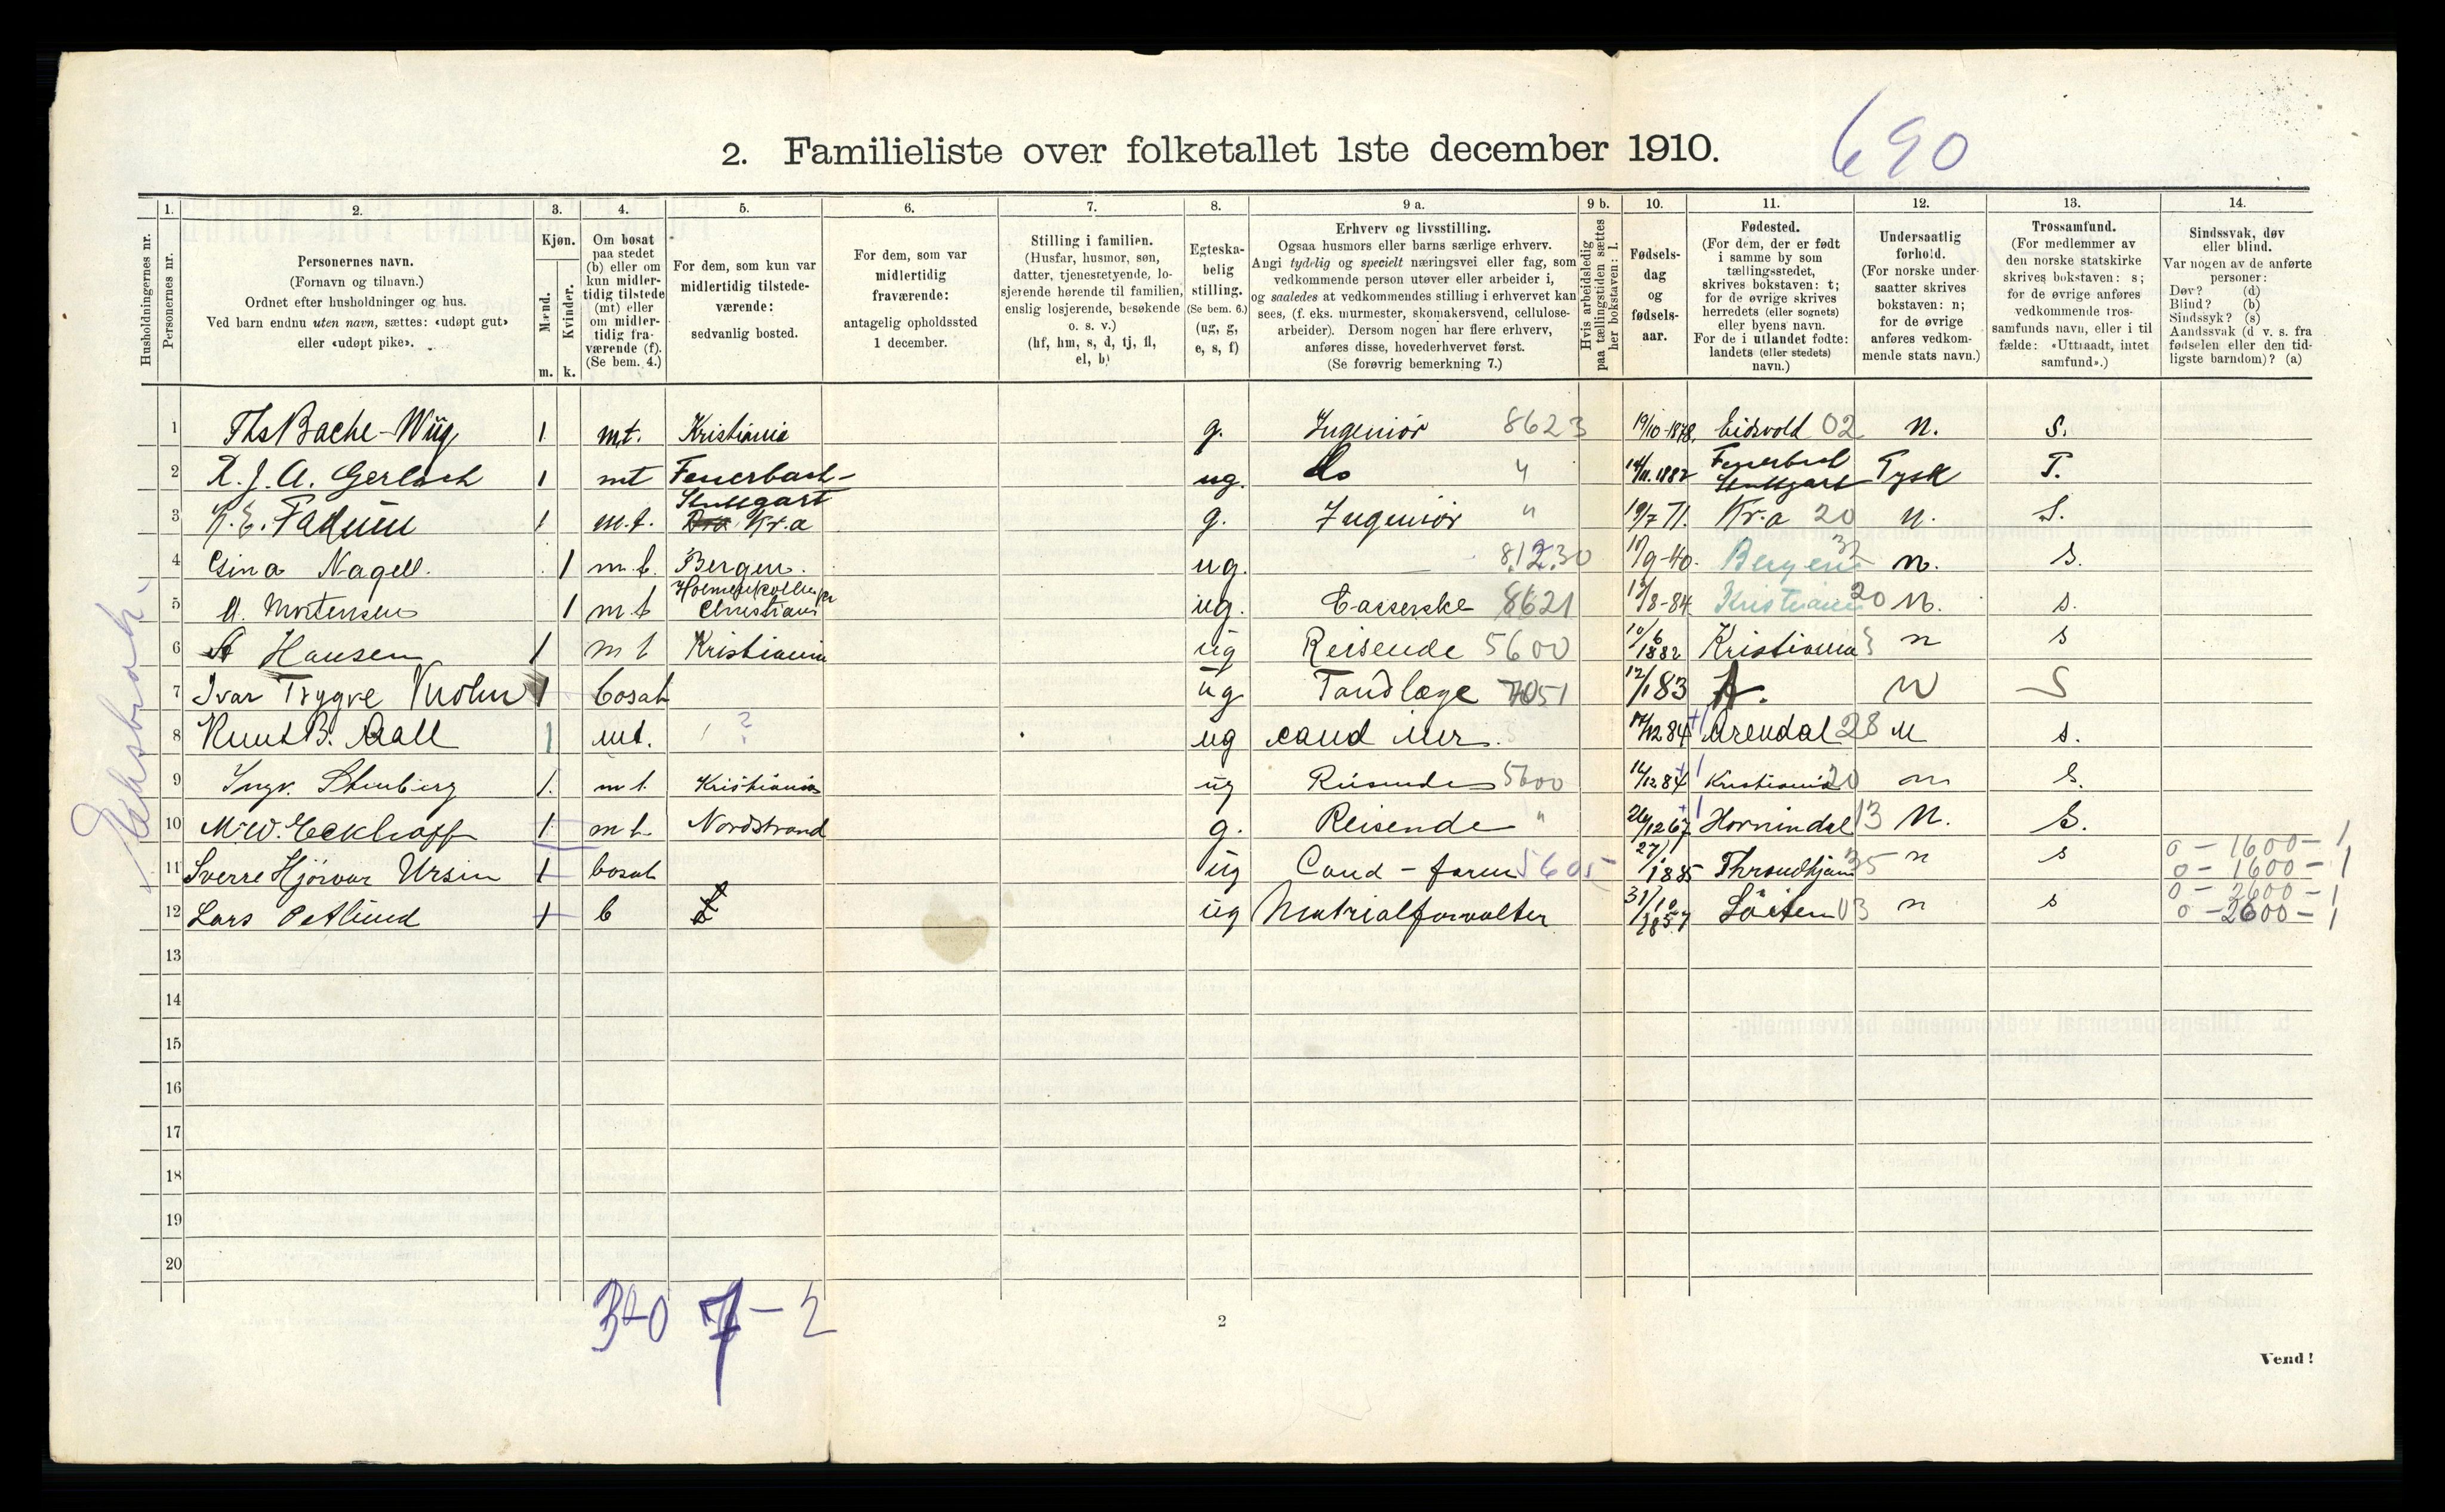 690
2. Familieliste over folketallet 1ste december 1910.
Husholdningernes nr.
1. Personernes nr.
2. Personernes navn. (Fornavn og tilnavn.) Ordnet efter husholdninger og hus. Ved barn endnu uten navn, sættes: «udøpt gut» eller «udøpt pike».
3. Kjøn. Mænd. m. Kvinder. k.
4. Om bosat paa stedet (b) eller om kun midlertidig tilstede (mt) eller om midlertidig fraværende (f). (Se bem. 4.)
5. For dem, som kun var midlertidig tilstedeværende: sedvanlig bosted.
6. For dem, som var midlertidig fraværende: antagelig opholdssted 1 december.
7. Stilling i familien. (Husfar, husmor, søn, datter, tjenestetyende, losjerende hørende til familien, enslig losjerende, besøkende o. s. v.) (hf, hm, s, d, tj, fl, el, b)
8. Egteskabelig stilling. (Se bem. 6.) (ug, g, e, s, f)
9 a. Erhverv og livsstilling. Ogsaa husmors eller barns særlige erhverv. Angi tydelig og specielt næringsvei eller fag, som vedkommende person utøver eller arbeider i, og saaledes at vedkommendes stilling i erhvervet kan sees, (f. eks. murmester, skomakersvend, cellulosearbeider). Dersom nogen har flere erhverv, anføres disse, hovederhvervet først. (Se forøvrig bemerkning 7.)
9 b. Hvis arbeidsledig paa tællingstiden sættes her bokstaven: l.
10. Fødselsdag og fødselsaar.
11. Fødested. (For dem, der er født i samme by som tællingsstedet, skrives bokstaven: t; for de øvrige skrives herredets (eller sognets) eller byens navn. For de i utlandet fødte: landets (eller stedets) navn.)
12. Undersaatlig forhold. (For norske undersaatter skrives bokstaven: n; for de øvrige anføres vedkommende stats navn.)
13. Trossamfund. (For medlemmer av den norske statskirke skrives bokstaven: s; for de øvrige anføres vedkommende trossamfunds navn, eller i tilfælde: «Uttraadt, intet samfund».)
14. Sindssvak, døv eller blind. Var nogen av de anførte personer: Døv? (d) Blind? (b) Sindssyk? (s) Aandssvak (d v. s. fra fødselen eller den tidligste barndom)? (a)
1 Ths Bache-Wiig 1 mt. Kristiania g. Ingeniør 8623 19/10-1878. Eidsvold 02 n. s.
2 R. J. A. Gerlach 1 mt Feuerbach-Stuttgart ug. do " 14/11.1882 Feuerbach Stuttgart Tysk T.
3 1 m.t. Kr.a g. Ingeniør " 19/7 71. Kr.a 20 n. S.
4 Gina Nagell. 1 m.t. Bergen. ug. — 81230 17/9-40. Bergen 32 n. s.
5 A. Mortensen 1 m t Christiani ug. Casserske 8621 /8-84 Kristiania 20 n. s.
6 A Hansen 1 m t Kristiania ug Reisende 5600 10/6 1882 Kristiania n s
7 Ivar Trygve Krohn 1 bosat ug Tandlæge 7051 12/1 83 t. N S
8 Knut B. Aall 1 mt. ? ug cand mer. 17/12 84 Arendal 28 n s.
9 Ingv. Stenberg 1. m t. Kristiania ug Reisende 5600 16/12 84 Kristiania 20 n s.
10 M. W. Eckhoff 1 m t. Nordstrand g. Reisende " 26/12 67 Hornindal 13 N. S.
11 Sverre Hjörvar Ursin 1 bosat ug Cand-farm 5605 27/1 1885 Throndhjem 35 n s
12 Lars Petlund 1 b ug Matrialforvalter 31/10 1857 Löiten 03 n s
0 - 1600 - 1
0 - 1600 - 1
0 - 2600 - 1
0 - 2600 - 1
13
14
15
16
17
18
19
20
3-0 7-2
2
Vend!